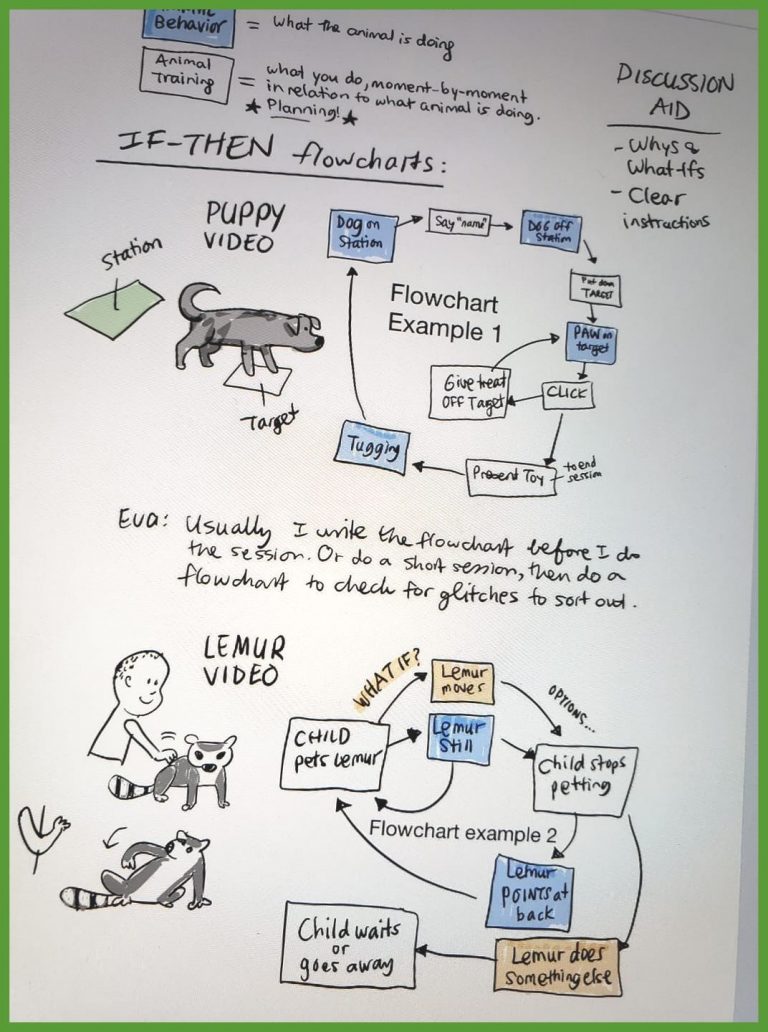 Behavior = What the animal is doing
Animal
Training = what you do, moment-by-moment
in relation to what animal is doing.
★ Planning! ★
DISCUSSION
AID
- Whys &
What-Ifs
- Clear
instructions
IF-THEN flowcharts:
PUPPY
VIDEO
Station
Target
Dog on
Station
Say "name"
DOG off
Station
Put down
TARGET
Flowchart
Example 1
PAW on
target
CLICK
Give treat
OFF Target
Present Toy
to end
session
Tugging
Eva: Usually I write the flowchart before I do
the session. Or do a short session, then do a
flowchart to check for glitches to sort out.
LEMUR
VIDEO
WHAT IF?
Lemur
moves
OPTIONS...
CHILD
pets Lemur
Lemur
Still
Child stops
petting
Flowchart example 2
Lemur
POINTS at
back
Child waits
or
goes away
Lemur does
Something else